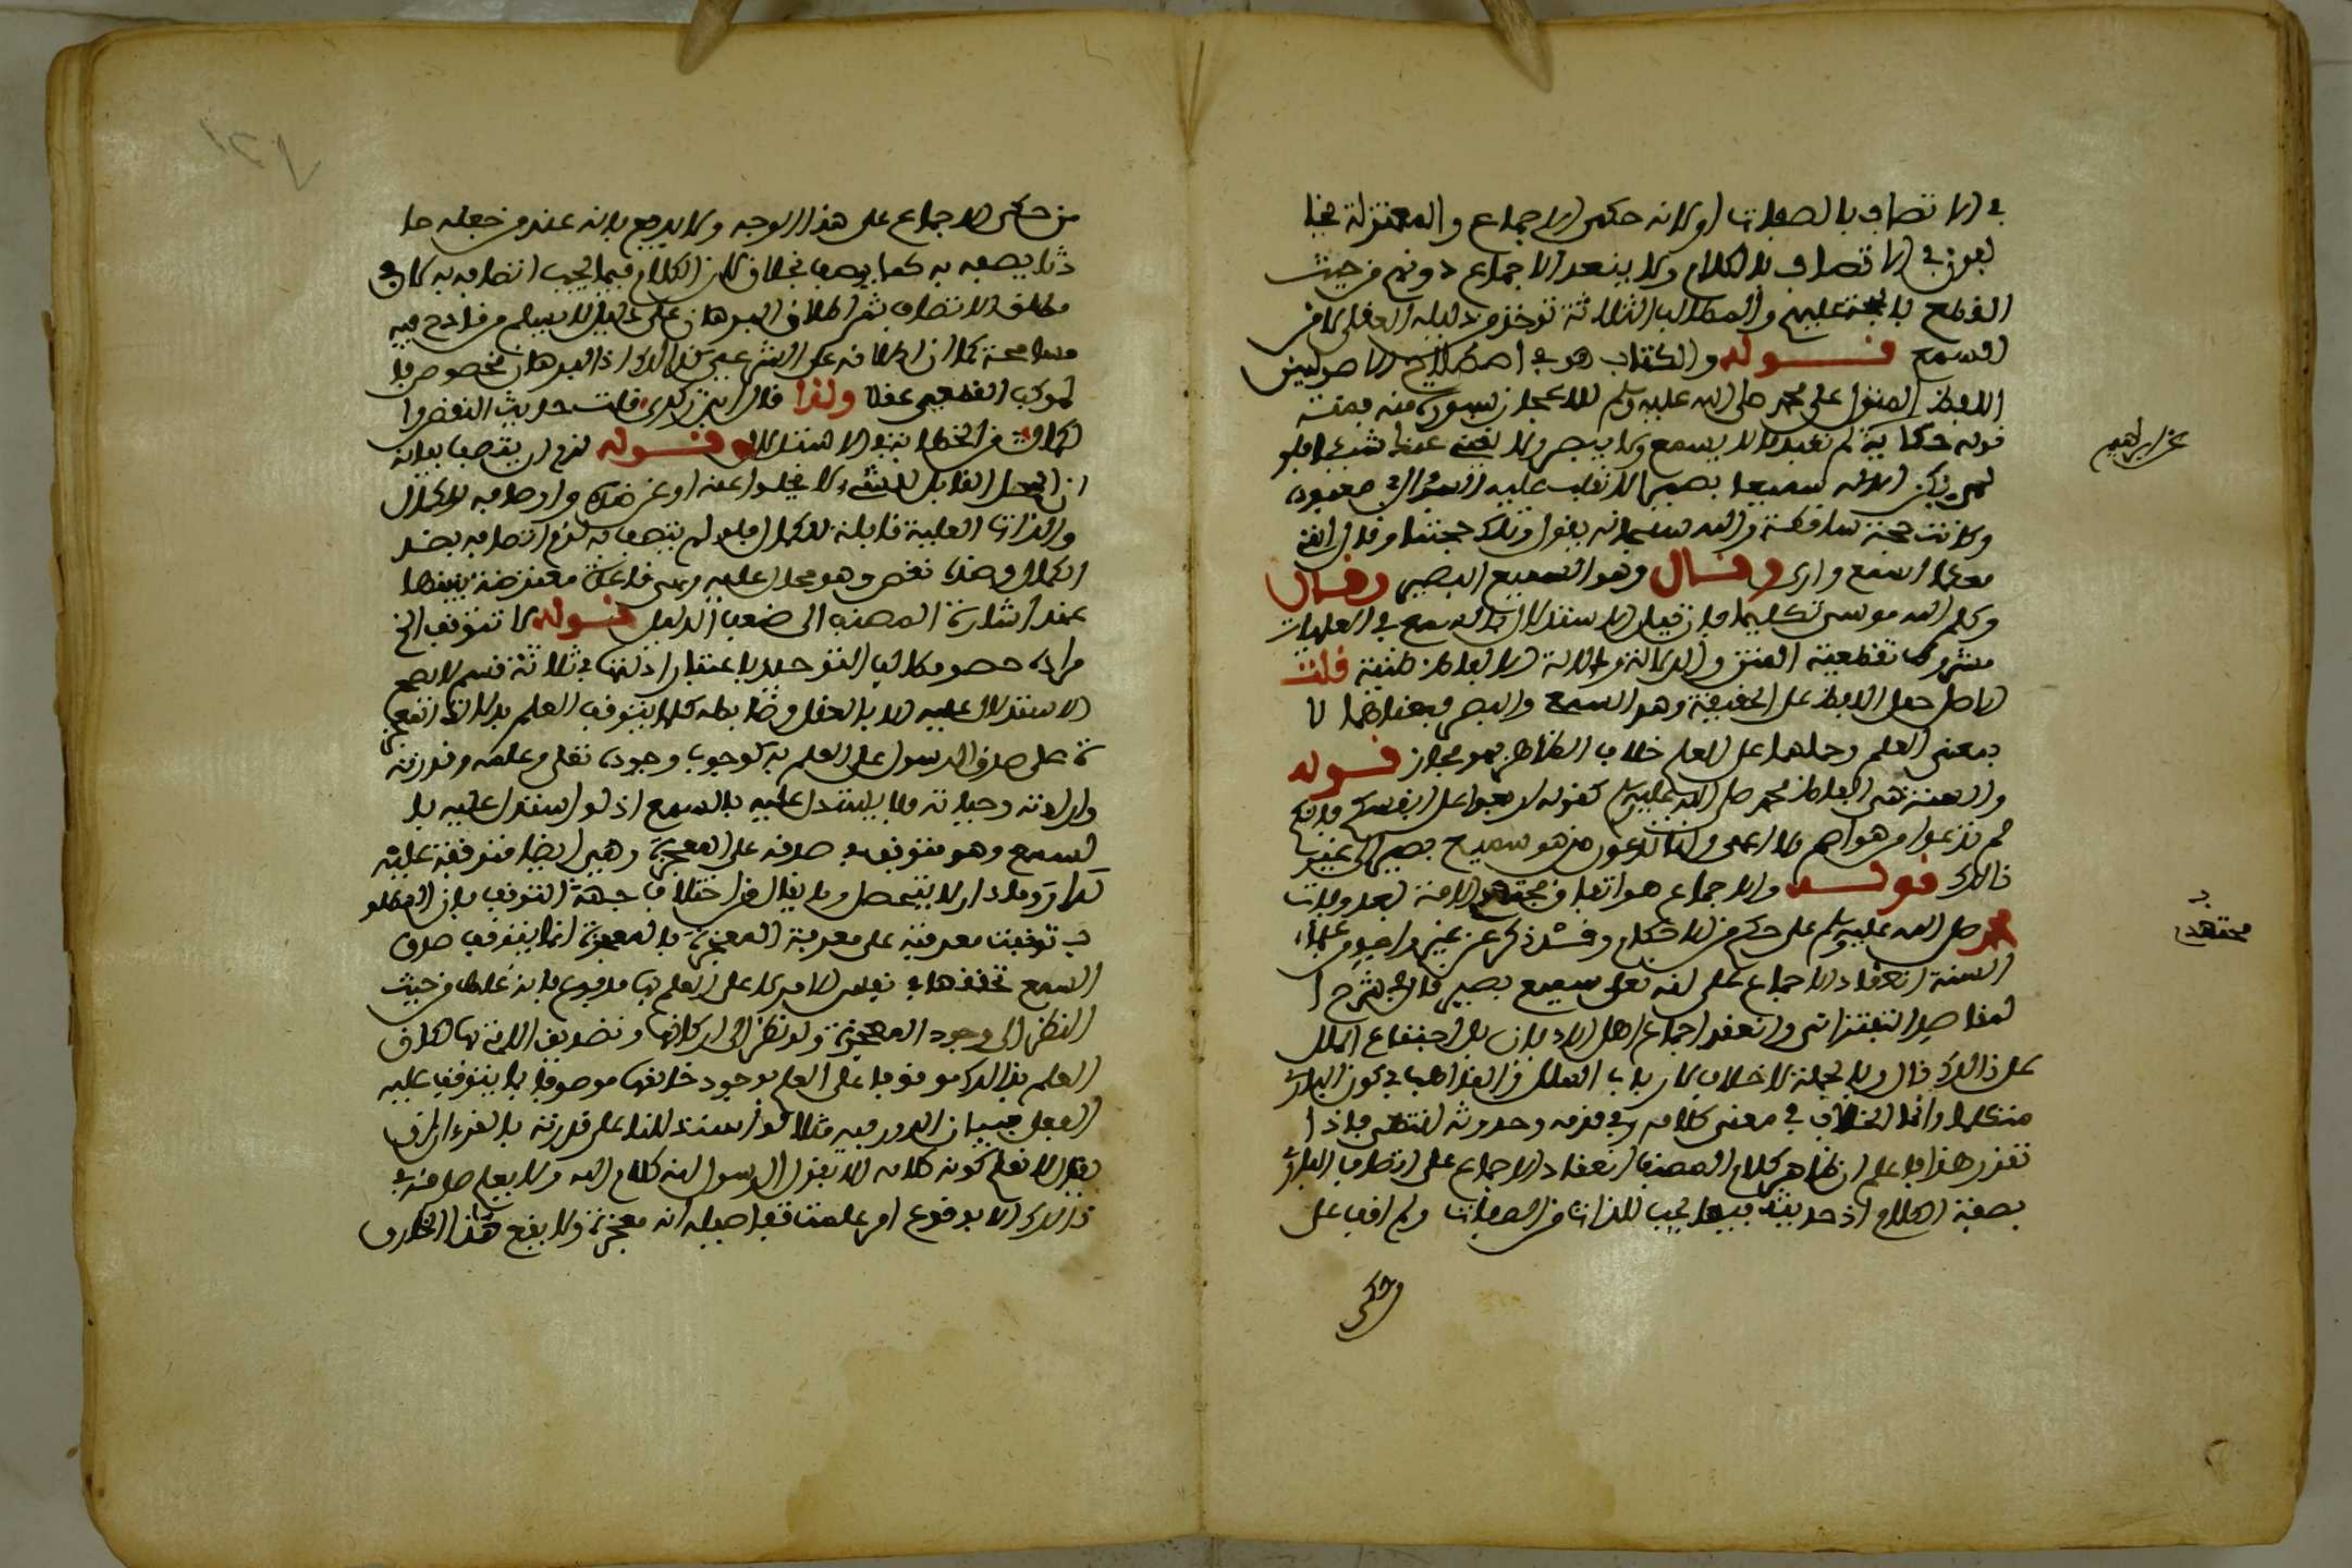 في الاتصاف بالصفات او لانه حكى الاجماع والمعتزلة يخا
لفون في الاتصاف بالكلام ولا ينعقد الاجماع دونهم من حيث
القطع بالحجة عليهم والمطالب الثلاثة تؤخذ من دليله العقلي لا من
السمع قوله والكتاب هو في اصطلاح الاصوليين
اللفظ المنزل على محمد صلى الله عليه وسلم للاعجاز بسورة منه
قوله حكاية لم تعبد ما لا يسمع ولا يبصر ولا يغني عنك شيئا فلو
لم يكن الاله سميعا بصيرا لانقلب عليه السؤال في معبوده
وكانت حجته ساقطة والله سبحانه يقول وتلك حجتنا وقال انني
معكما اسمع وارى وقال وهو السميع البصير وقال
وكلم الله موسى تكليما فان قيل الاستدلال بالسمع في العلميات
مشروط بقطعية المتن والدلالة ودلالة الالفاظ ظنية قلت
الاصل حمل اللفظ على الحقيقة وهو السمع والبصر فبمعناهما لا
بمعنى العلم وحملهما على العلم خلاف الظاهر فهو مجاز قوله
والسنة هي الفاظ محمد صلى الله عليه وسلم كقوله اربعوا على انفسكم فانكم
لم تدعوا من هو اصم ولا اعمى وانما تدعون من هو سميع بصير الى غير
ذالك قوله والاجماع هو اتفاق مجتهد الامة بعد وفات
محمد صلى الله عليه وسلم على حكم من الاحكام وقد ذكر عن غير واحد من علماء
السنة انعقاد الاجماع على انه تعلى سميع بصير قال في شرح ا
لمقاصد التفتزاني وانعقد اجماع اهل الاديان بل اجتماع الملل
على ذالك قال وبالجملة لا خلاف لارباب الملل والمذاهب في كون البارئ
متكلما وانما الخلاف في معنى كلامه وفي قدمه وحدوثه انتهى فاذا
تقرر هذا فاعلم ان ظاهر كلام المصنف انعقاد الاجماع على اتصاف البارئ
بصفة الكلام اذ حديثه فيما يجب للذات من الصفات ولم اقف على
من حكى الاجماع على هذا الوجه ولا يدفع بانه عند من جعله حا
دثا يصفه به كما يوصف بخلاف لان الكلام فيما يجب اتصافه به لا في
مطلق الاتصاف ثم اطلاق البرهان على النقل لا يسلم من قادح فيه
مسامحة كما ان اطلاقه على الشرعي كذالك اذ البرهان مخصوص با
لمركب القطعي عقلا ولذا قال ابن زكري قلت حديث النقص وا
لكمال من الخطابة في الاستدلال قوله لزم ان يتصف
ان المحل القابل للشيء لا يخلوا عنه او عن ضده واوصافه الكمال
والذات العلية قابلة للكمال فلو لم يتصف به لزم اتصافه بضد
الكمال وضده نقص وهو محال عليه وهي قاعدة معترضة بينها
عند اشارة المصنف الى ضعف الدليل قوله لا تتوقف الخ
مراده حصر مطالب التوحيد باعتبار ادلتها في ثلاثة قسم لا يصح
الاستدلال عليه الا بالعقل وضابطه كل ما يتوقف العلم بدلالة المعجز
ة على صدق الرسول على العلم به كوجوب وجوده تعلى وعلمه وقدرته
وارادته وحياته فلا يستدل عليه بالسمع اذ لو استدل عليه با
لسمع وهو متوقف في صدقه على المعجزة وهي ايضا متوقفة عليه
لدار وما دار لا يتحصل وما يقال من اختلاف جهة التوقف بان المطلو
ب توقفت معرفته على معرفة المعجزة والمعجزة انما يتوقف صدق
السمع تحققها في نفس الامر لا على العلم بها مدفوع بانه غلط من حيث
النظر الى وجود المعجزة ولو نظر الى اركانها وتصديق الامة بها لكان
العلم بذالك موقوفا على العلم بوجود خالقها موصوفا بما يتوقف عليه
الفعل فبيان الدور فيه مثلا لو استدللنا على قدرته بالقرءان
يقال لا نعلم كونه كلامه الا بقول الرسول انه كلام الله ولا يعلم صدقه في
ذالك الا بوقوع امر علمت تفاصيله انه معجزة ولا يقع هذا الخارق
وحكى
مجتهد